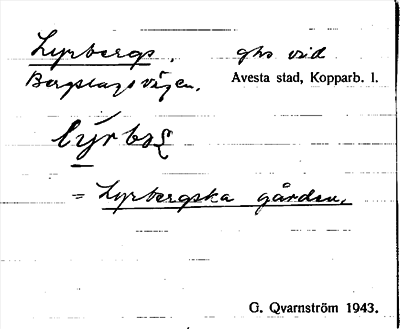 Lyrbergs, ghs vid
Bergslagsvägen. Avesta stad, Kopparb. l.
= Lyrbergska gården.
G. Qvarnström 1943.